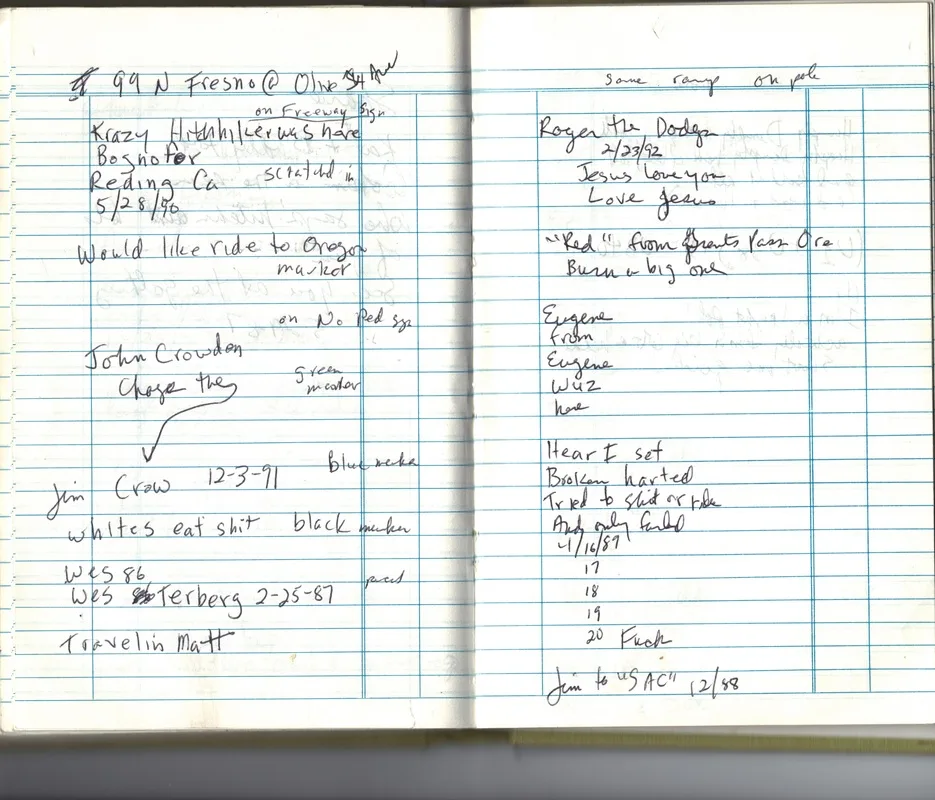 99 N Fresno @ Olive St Ave
on Freeway sign
Krazy Hitchhiker was here
Bognofer
Reding Ca scratchd in
5/28/90
Would like ride to Oregon
marker
on No Ped sign
John Crowdon
green
marker
Jim Crow 12-3-91 Blue marker
whites eat shit black marker
Wes 86
Wes Terberg 2-25-87
Travelin Matt
same ramp on pole
Roger the Dodger
2/23/92
Jesus love you
Love Jesus
"Red" from Grants Pass Ore
Burn a big one
Eugene
from
Eugene
wuz
here
Hear I set
Broken harted
Tried to shit or ride
And only farted
4/16/87
17
18
19
20 Fuck
Jim to "SAC" 12/88